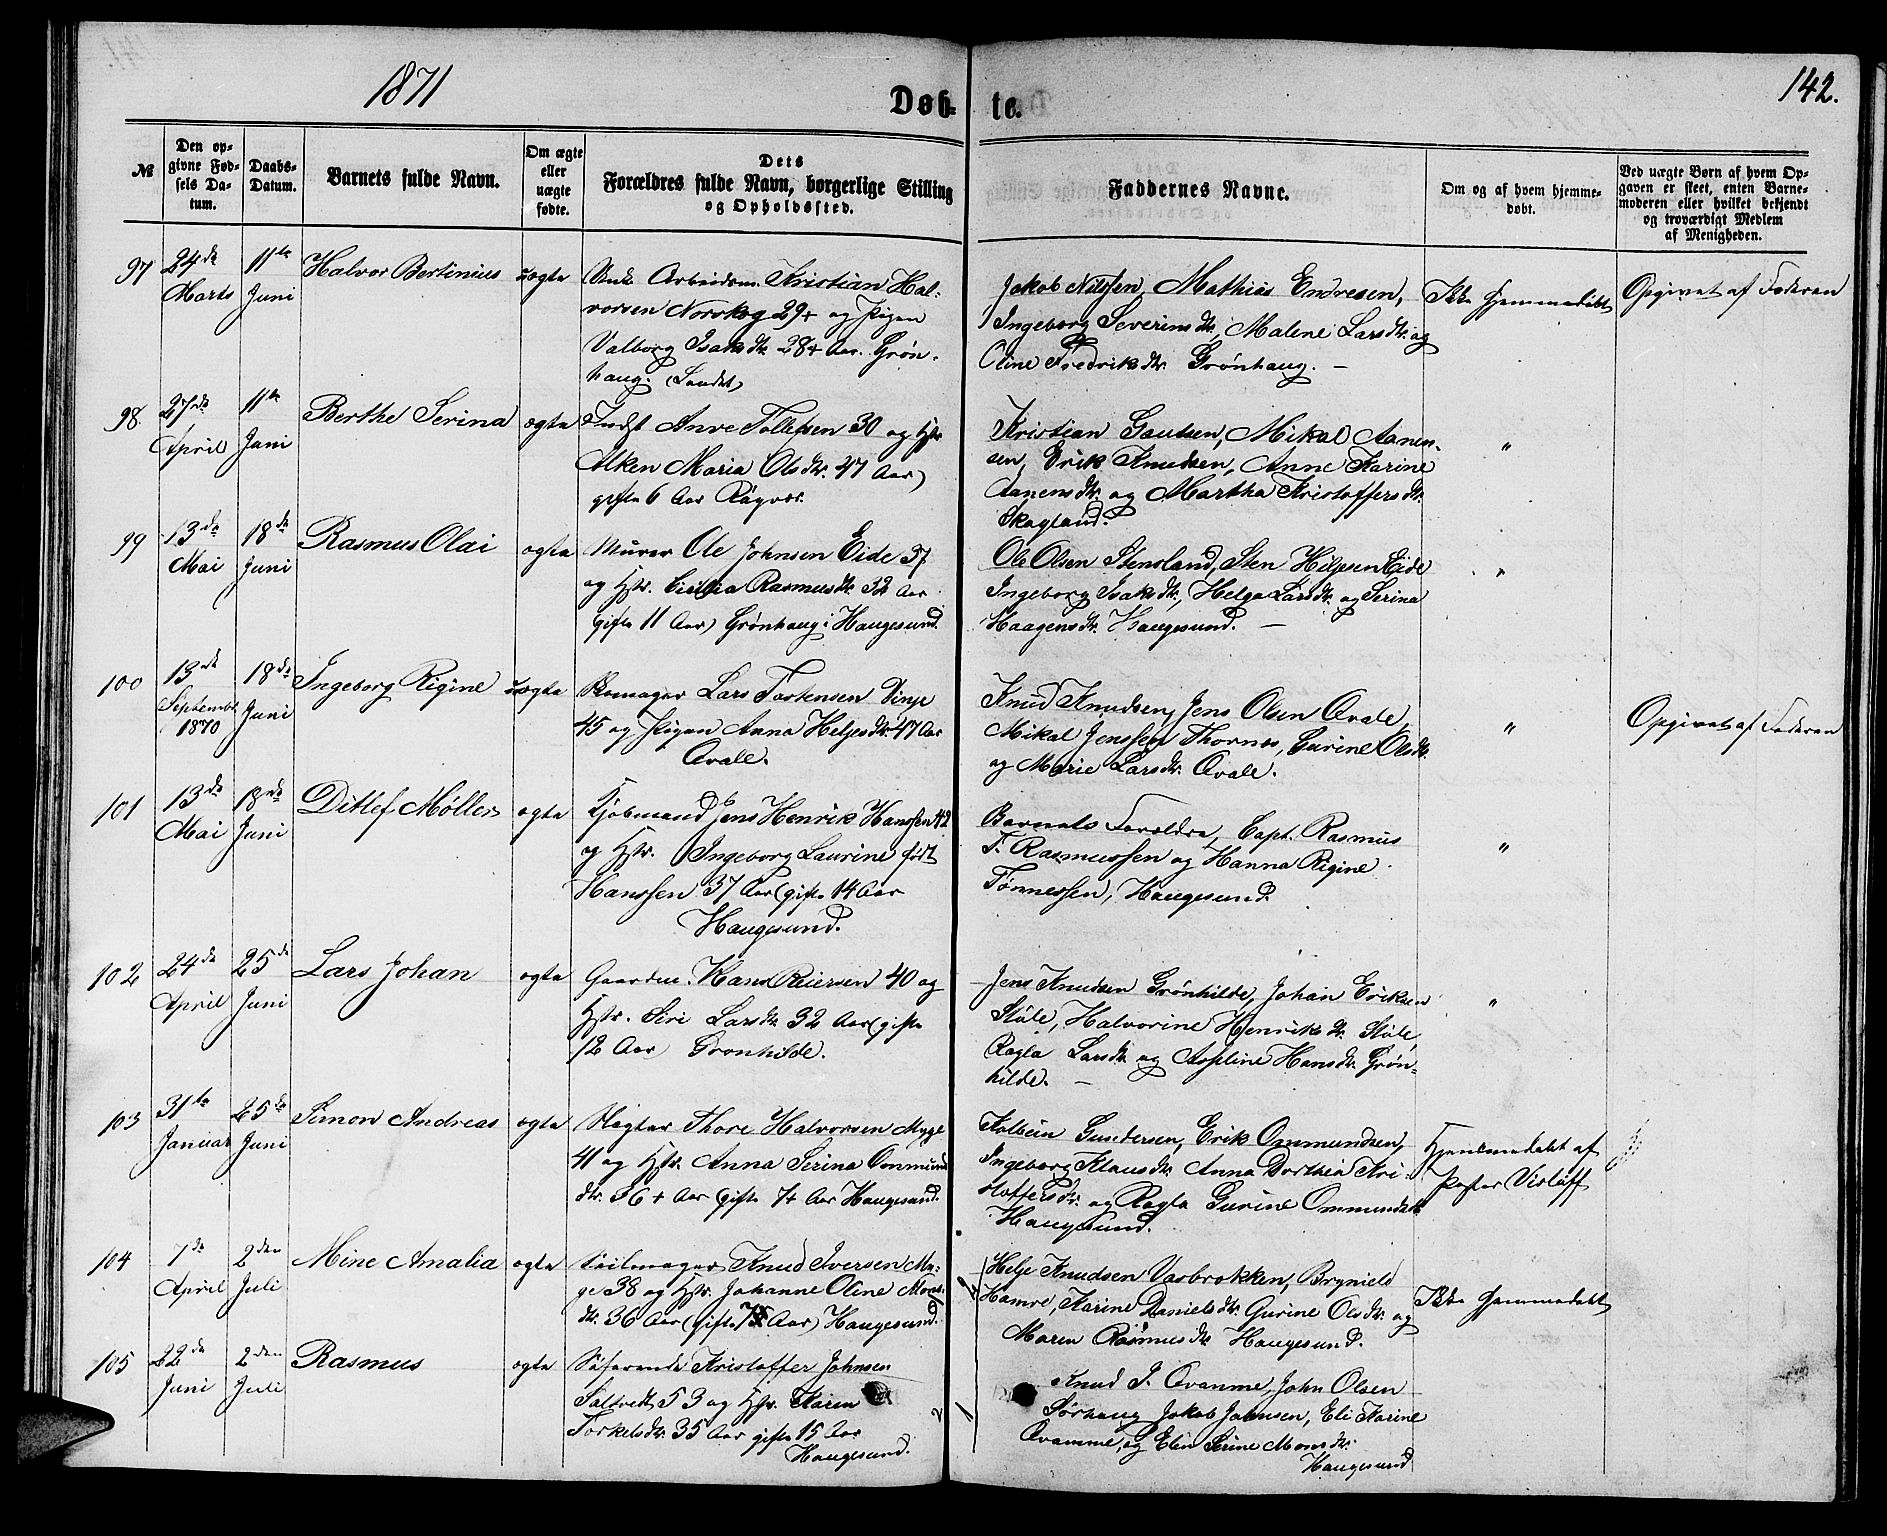 1871
142.
Døb-
te.
№
Den op-
givne Fød-
sels Da-
tum.
Daabs-
Datum.
Barnets fulde Navn.
Om ægte
eller
uægte
fødte.
Dets
Forældres fulde Navn, borgerlige Stilling
og Opholdssted.
Faddernes Navne.
Om og af hvem hjemme-
døbt.
Ved uægte Børn af hvem Op-
gaven er skeet, enten Barne-
moderen eller hvilket bekjendt
og troværdigt Medlem
af Menigheden.
97
24de
Marts
11te
Juni
Halvor Bertinius
uægte
Arbeidsm. Kristian Hal-
vorsen Norskog 29+ og Pigen
Valborg Isaksdtr. 28+ Aar. Grøn-
haug. (Landet)
Jakob Nilssen, Mathias Endresen,
Ingeborg Severinsdtr., Malene Larsdtr. og
Oline Fredriksdtr. Grønhaug. —
Ikke hjemmedøbt
Opgivet af Faderen
98.
27de
April
11te
Juni
Berthe Serina
ægte
Indst Anve Tollefsen 30 og Hstr
Alken Maria Olsdtr. 47 Aar)
gifte 6 Aar Røgvær.
Kristian Gautsen, Mikal Aanen-
sen, Erik Knudsen, Anne Karine
Aanensdtr. og Martha Kristoffersdtr.
Skogland.
"
99
13de
Mai
18de
Juni
Rasmus Olai
ægte
Murer Ole Johnsen Eide 37
og Hstr. Cicilia Rasmusdtr. 32 Aar
gifte 11 Aar) Grønhaug i Haugesund.
Ole Olsen Stensland, Sten Helgesen Eide
Ingeborg Isaksdtr., Helga Larsdtr. og Serina
Haagensdtr. Haugesund. —
"
100
13de
Septembr
1870
18de
Juni
Ingeborg Rigine
uægte
Lars Torstensen Vinje
45 og Pigen Anna Heljesdtr. 47 Aar
Qvale.
Knud Knudsen, Jens Olsen Qvale,
Mikal Jenssen Thornes, Gurine Olsdtr.
og Marie Larsdtr. Qvale.
"
Opgivet af Faderen
101
13de
Mai
18de
Juni
Ditlef Møller
ægte
Kjøbmand Jens Henrik Hanssen 42
og Hstr. Ingeborg Laurine født
Hanssen 37 Aar (gifte 14 Aar
Haugesund.
Barnets Forældre, Capt. Rasmus
F. Rasmussen og Hanna Rigine
Tønnessen, Haugesund.
"
102
24de
April
25de
Juni
Lars Johan
ægte
Gaardm. Hans Reiersen 40 og
Hstr. Siri Larsdtr. 32 Aar (gifte
12 Aar) Grønhilde.
Jens Knudsen Grønhilde, Johan Eriksen
Støle, Halvorine Henriksdtr. Støle,
Ragla Larsdtr. og Asseline Hansdtr. Grøn-
hilde. —
"
103
31te
Januar
25de
Juni
Simon Andreas
ægte
Slagter Thore Halvorsen Myge
41 og Hstr. Anna Serina Ommund
dtr. 36+ Aar (gifte 7+ Aar Haugesund.
Kolbein Gundersen, Erik Ommundsen,
Ingeborg Klausdtr. Anna Dorthea Kri-
stoffersdtr. og Ragla Gurine Ommundsdtr.
Haugesund.
Hjemmedøbt af
Pastor Visløff
104
7de
April
2den
Juli
Mine Amalia
ægte
Seilmager Knud Iversen My-
ge 38 og Hstr. Johanne Oline Mons-
dtr. 36 Aar (gifte Aar) Haugesund.
Helje Knudsen Vasbrekken, Brynild
Hamre, Karine Danielsdtr. Gurine Olsdtr. og
Maren Rasmusdtr. Haugesund.
Ikke hjemmedøbt
105
22de
Juni
2den
Juli
Rasmus
ægte
Søfarende Kristoffer Johnsen
Saltvedt 53 og Hstr. Karen
Torkelsdtr. 35 Aar gifte 15 Aar
Haugesund.
Knud J. Qvamme, John Olsen
Sørhaug Jakob Johnsen, Eli Karine
Qvamme, og Elin Serine Monsdtr.
Haugesund